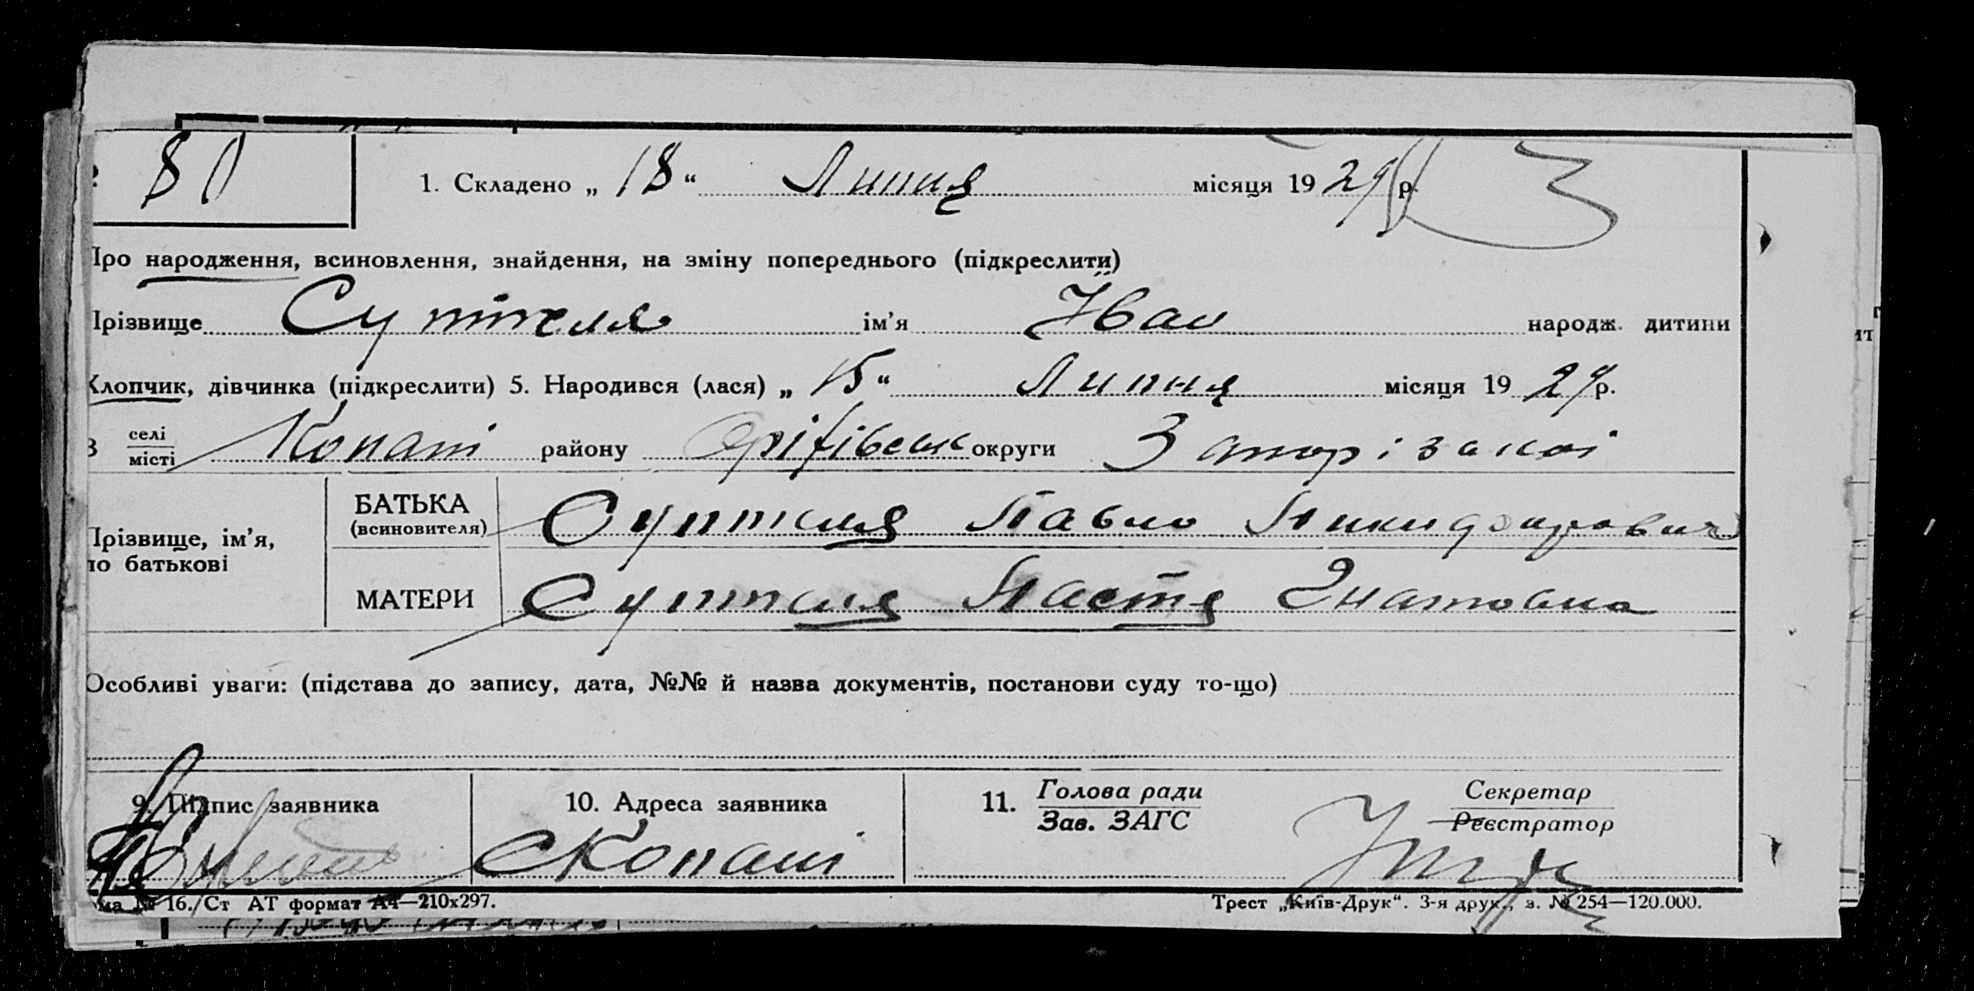 80 1. Складено „ 18 “ Липня місяця 19 29 р.
Про народження, всиновлення, знайдення, на зміну попереднього (підкреслити)
Прізвище Суптеля ім’я Иван народж. дитини
Хлопчик, дівчинка (підкреслити) 5. Народився (лася) „ 15 “ Липня місяця 19 29 р.
В селі місті Копані району Оріхівськ округи Запорізької
БАТЬКА
(всиновителя) Суптеля Павло Никифорович
Прізвище, ім’я,
по батькові
МАТЕРИ Суптеля Настя Знатовна
Особливі уваги: (підстава до запису, дата, №№ й назва документів, постанови суду то-що)
9. Підпис заявника 10. Адреса заявника 11. Голова ради Секретар
Зав. ЗАГС Реєстратор
с Копані
№ 16./Ст АТ формат А4—210х297. Трест „Київ-Друк“. 3-я друк., з. № 254—120.000.